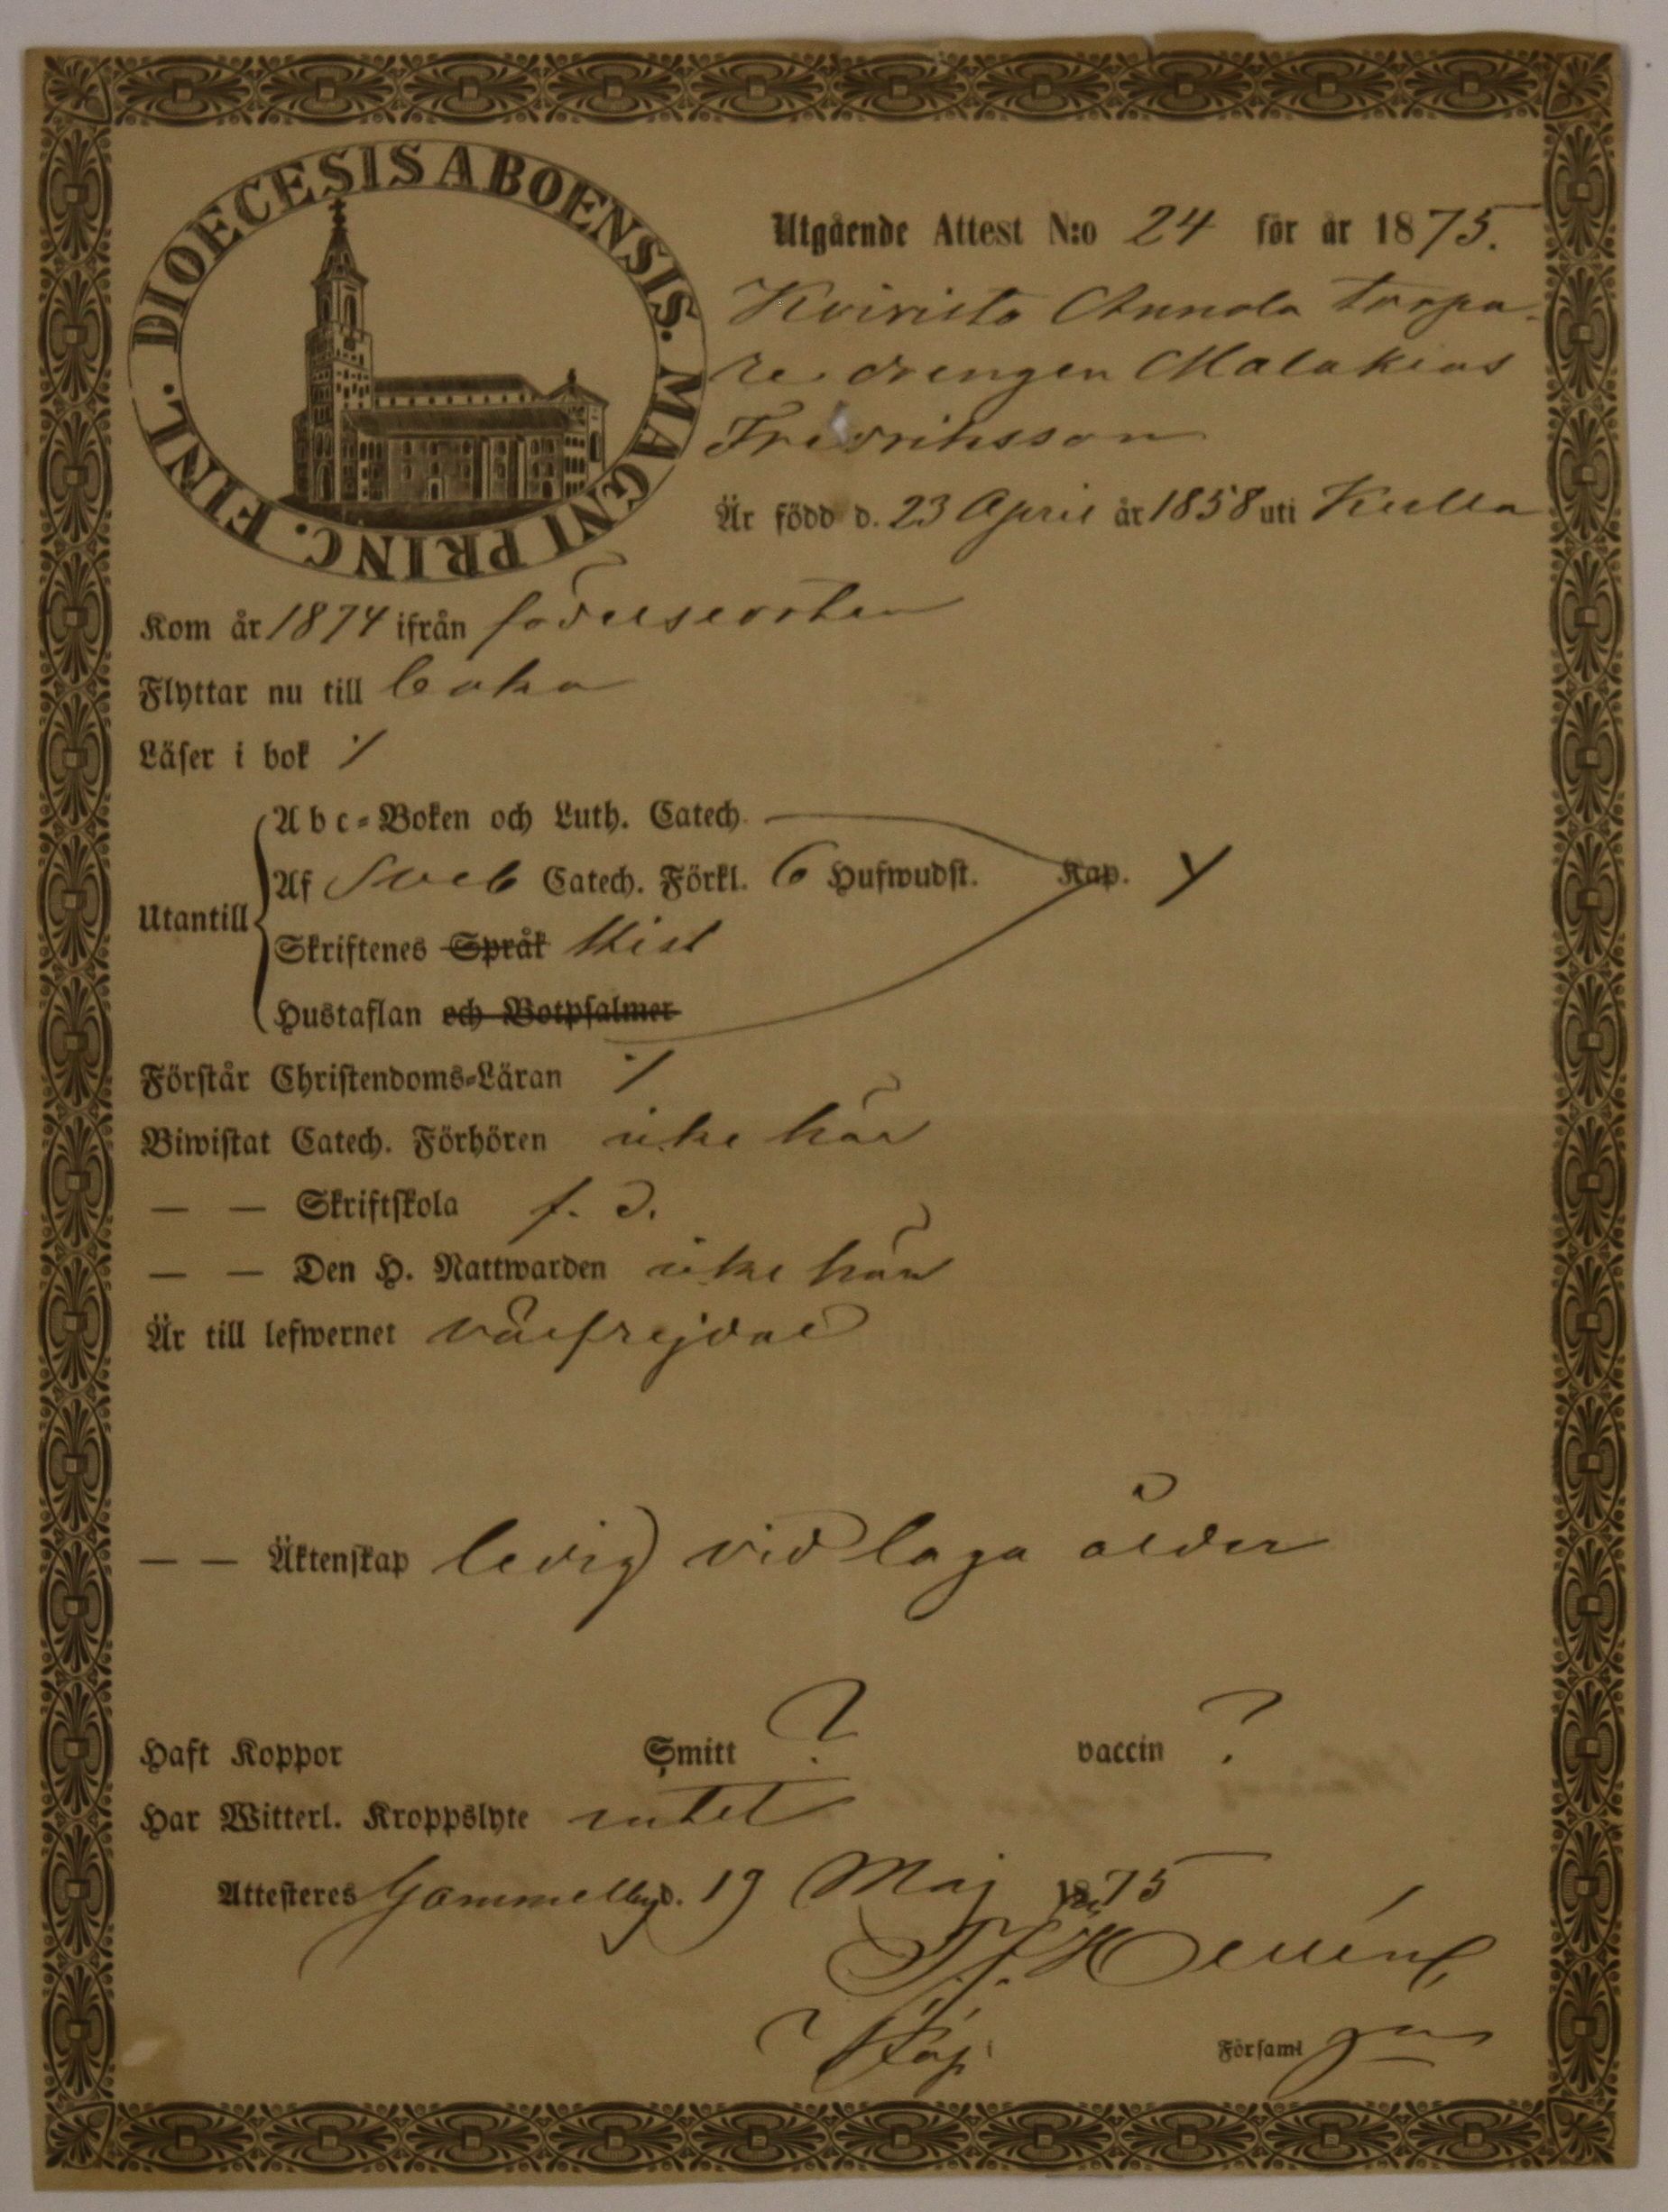 DIOECESIS ABOENSIS. MAGNI PRINC. FINL.
Utgående Attest N:o 24 för år 1875.
Koivisto Annola torpa-
re drengen Malakias
Fredriksson
Är född d. 23 April år 1858 uti Kulla
Kom år 1874 ifrån födelseorten
Flyttar nu till
Läser i bok ⁒
Utantill
Abc-Boken och Luth. Catech.
Af Sveb Catech. Förkl. 6 Hufwudst. Kap.
Skriftenes Språk
Hustaflan och Botpsalmer
Förstår Christendoms-Läran ⁒
Biwistat Catech. Förhören icke här
— — Skriftskola f. d.
— — Den H. Nattwarden icke här
Är till lefwernet välfrejdad
— — Äktenskap ledig vid laga ålder
Haft Koppor Smitt ? vaccin ?
Har Witterl. Kroppslyte intet
Attesteres Gammelby d. 19 Maj 1875
Kap. Församl